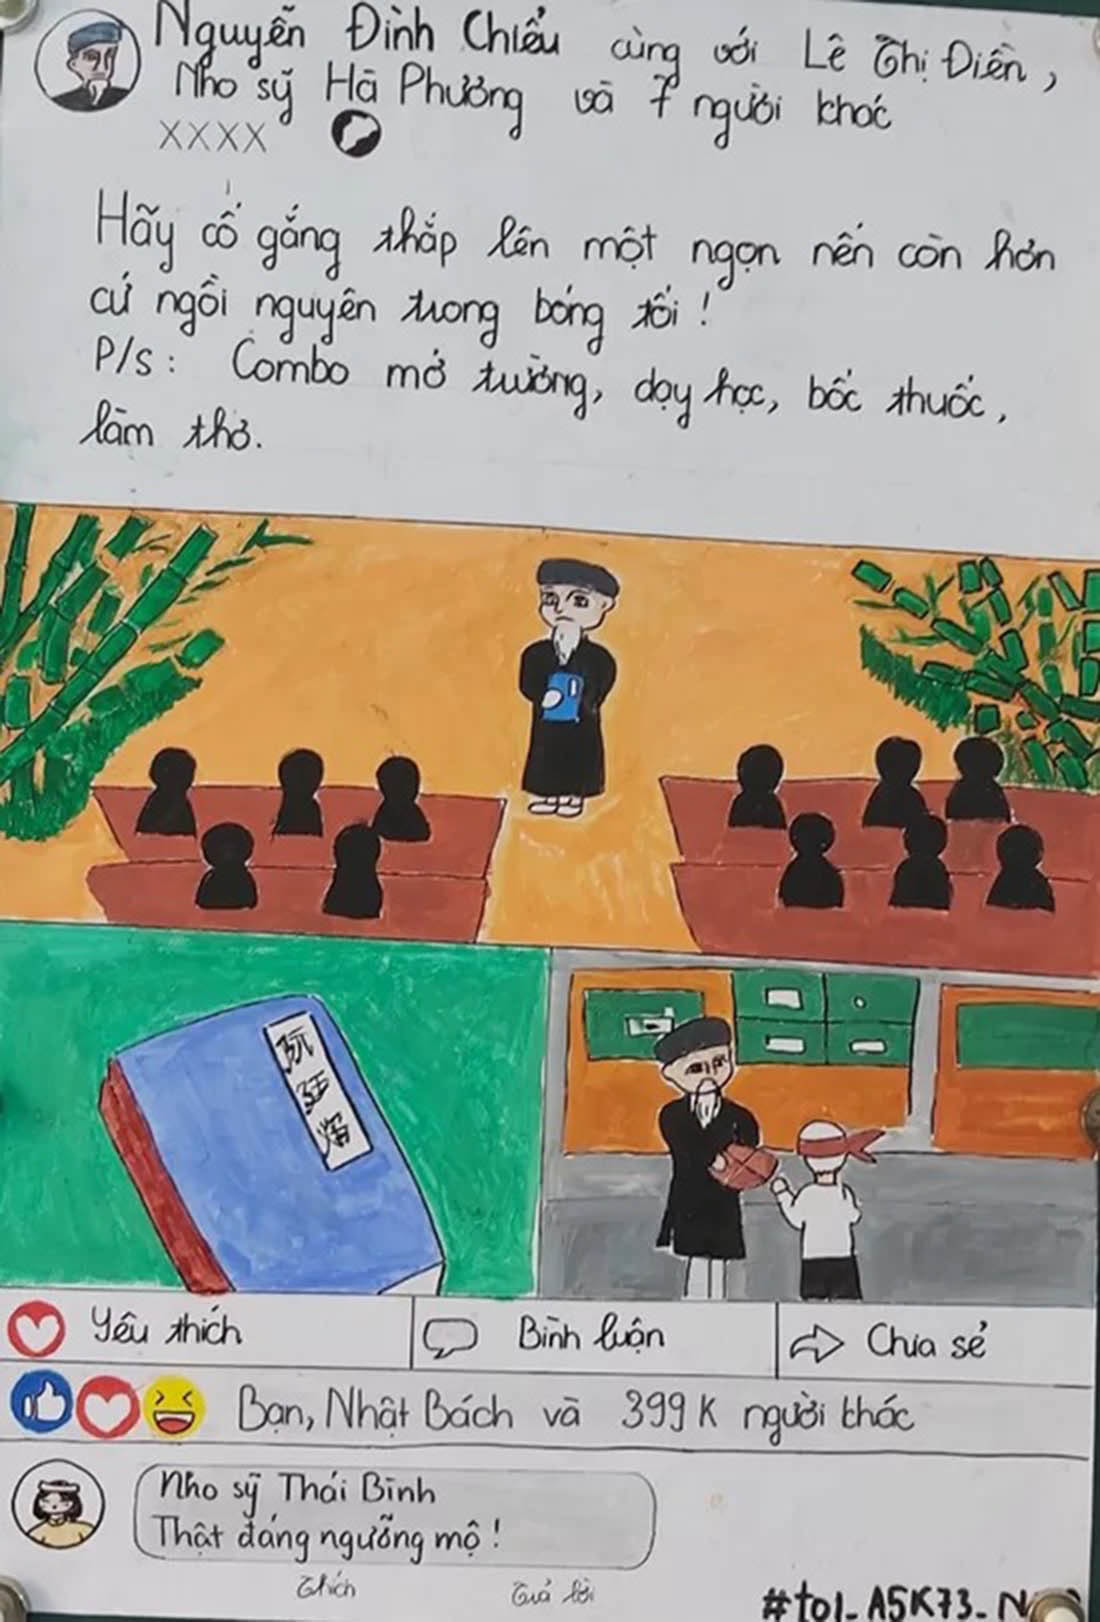 Nguyễn Đình Chiểu cùng với Lê Thị Điền,
Nho sỹ Hà Phương và 7 người khác
XXXX
Hãy cố gắng thắp lên một ngọn nến còn hơn
cứ ngồi nguyên trong bóng tối!
P/S: Combo mở trường, dạy học, bốc thuốc,
làm thơ.
阮
廷
Yêu thích
Bình luận
Chia sẻ
Bạn, Nhật Bách và 399K người khác
Nho sỹ Thái Bình
Thật đáng ngưỡng mộ!
Thích
Trả lời
#to1_A5K73_N